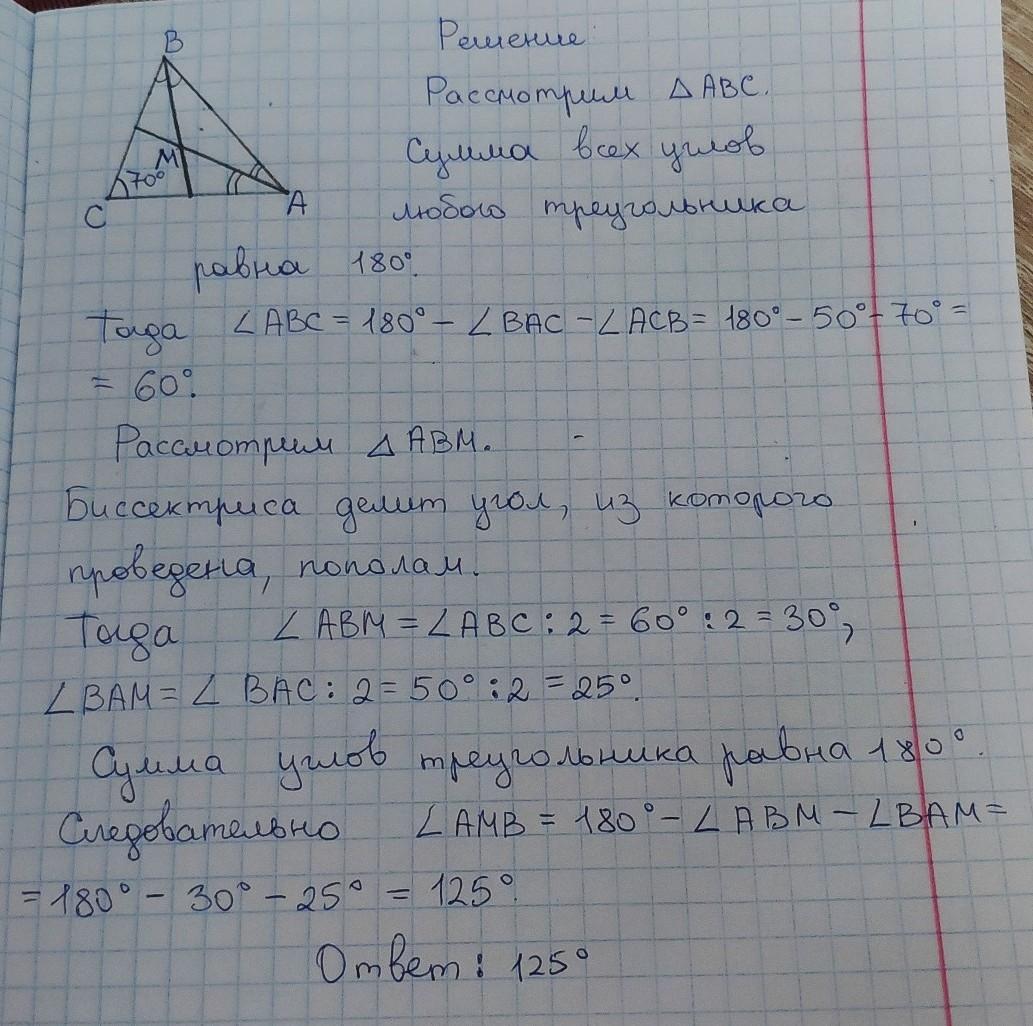 B
Решение
Рассмотрим △ABC.
Сумма всех углов
M
70°
C
A
любого треугольника
равна 180°.
Тогда ∠ABC = 180° - ∠BAC - ∠ACB = 180° - 50° - 70° =
= 60°.
Рассмотрим △ABM.
Биссектриса делит угол, из которого
проведена, пополам.
Тогда ∠ABM = ∠ABC : 2 = 60° : 2 = 30°,
∠BAM = ∠BAC : 2 = 50° : 2 = 25°.
Сумма углов треугольника равна 180°.
Следовательно ∠AMB = 180° - ∠ABM - ∠BAM =
= 180° - 30° - 25° = 125°.
Ответ: 125°